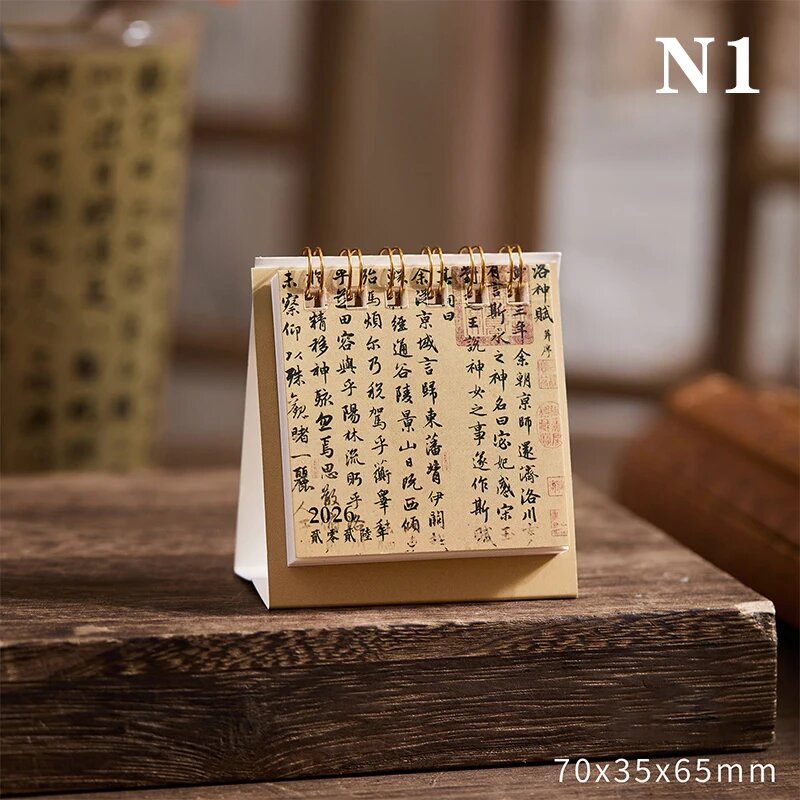 N1
洛神賦 并序
三年余朝京師還濟洛川
有言斯水之神名曰宓妃感宋王
王說神女之事遂作斯賦
其詞曰
余從京域言歸東藩背伊闕
經通谷陵景山日既西傾
殆馬煩爾乃稅駕乎蘅皋
乎芝田容與乎陽林流眄乎洛
精移神駭忽焉思散
未察仰以殊觀睹一麗人
2026
貳零貳陸
70x35x65mm